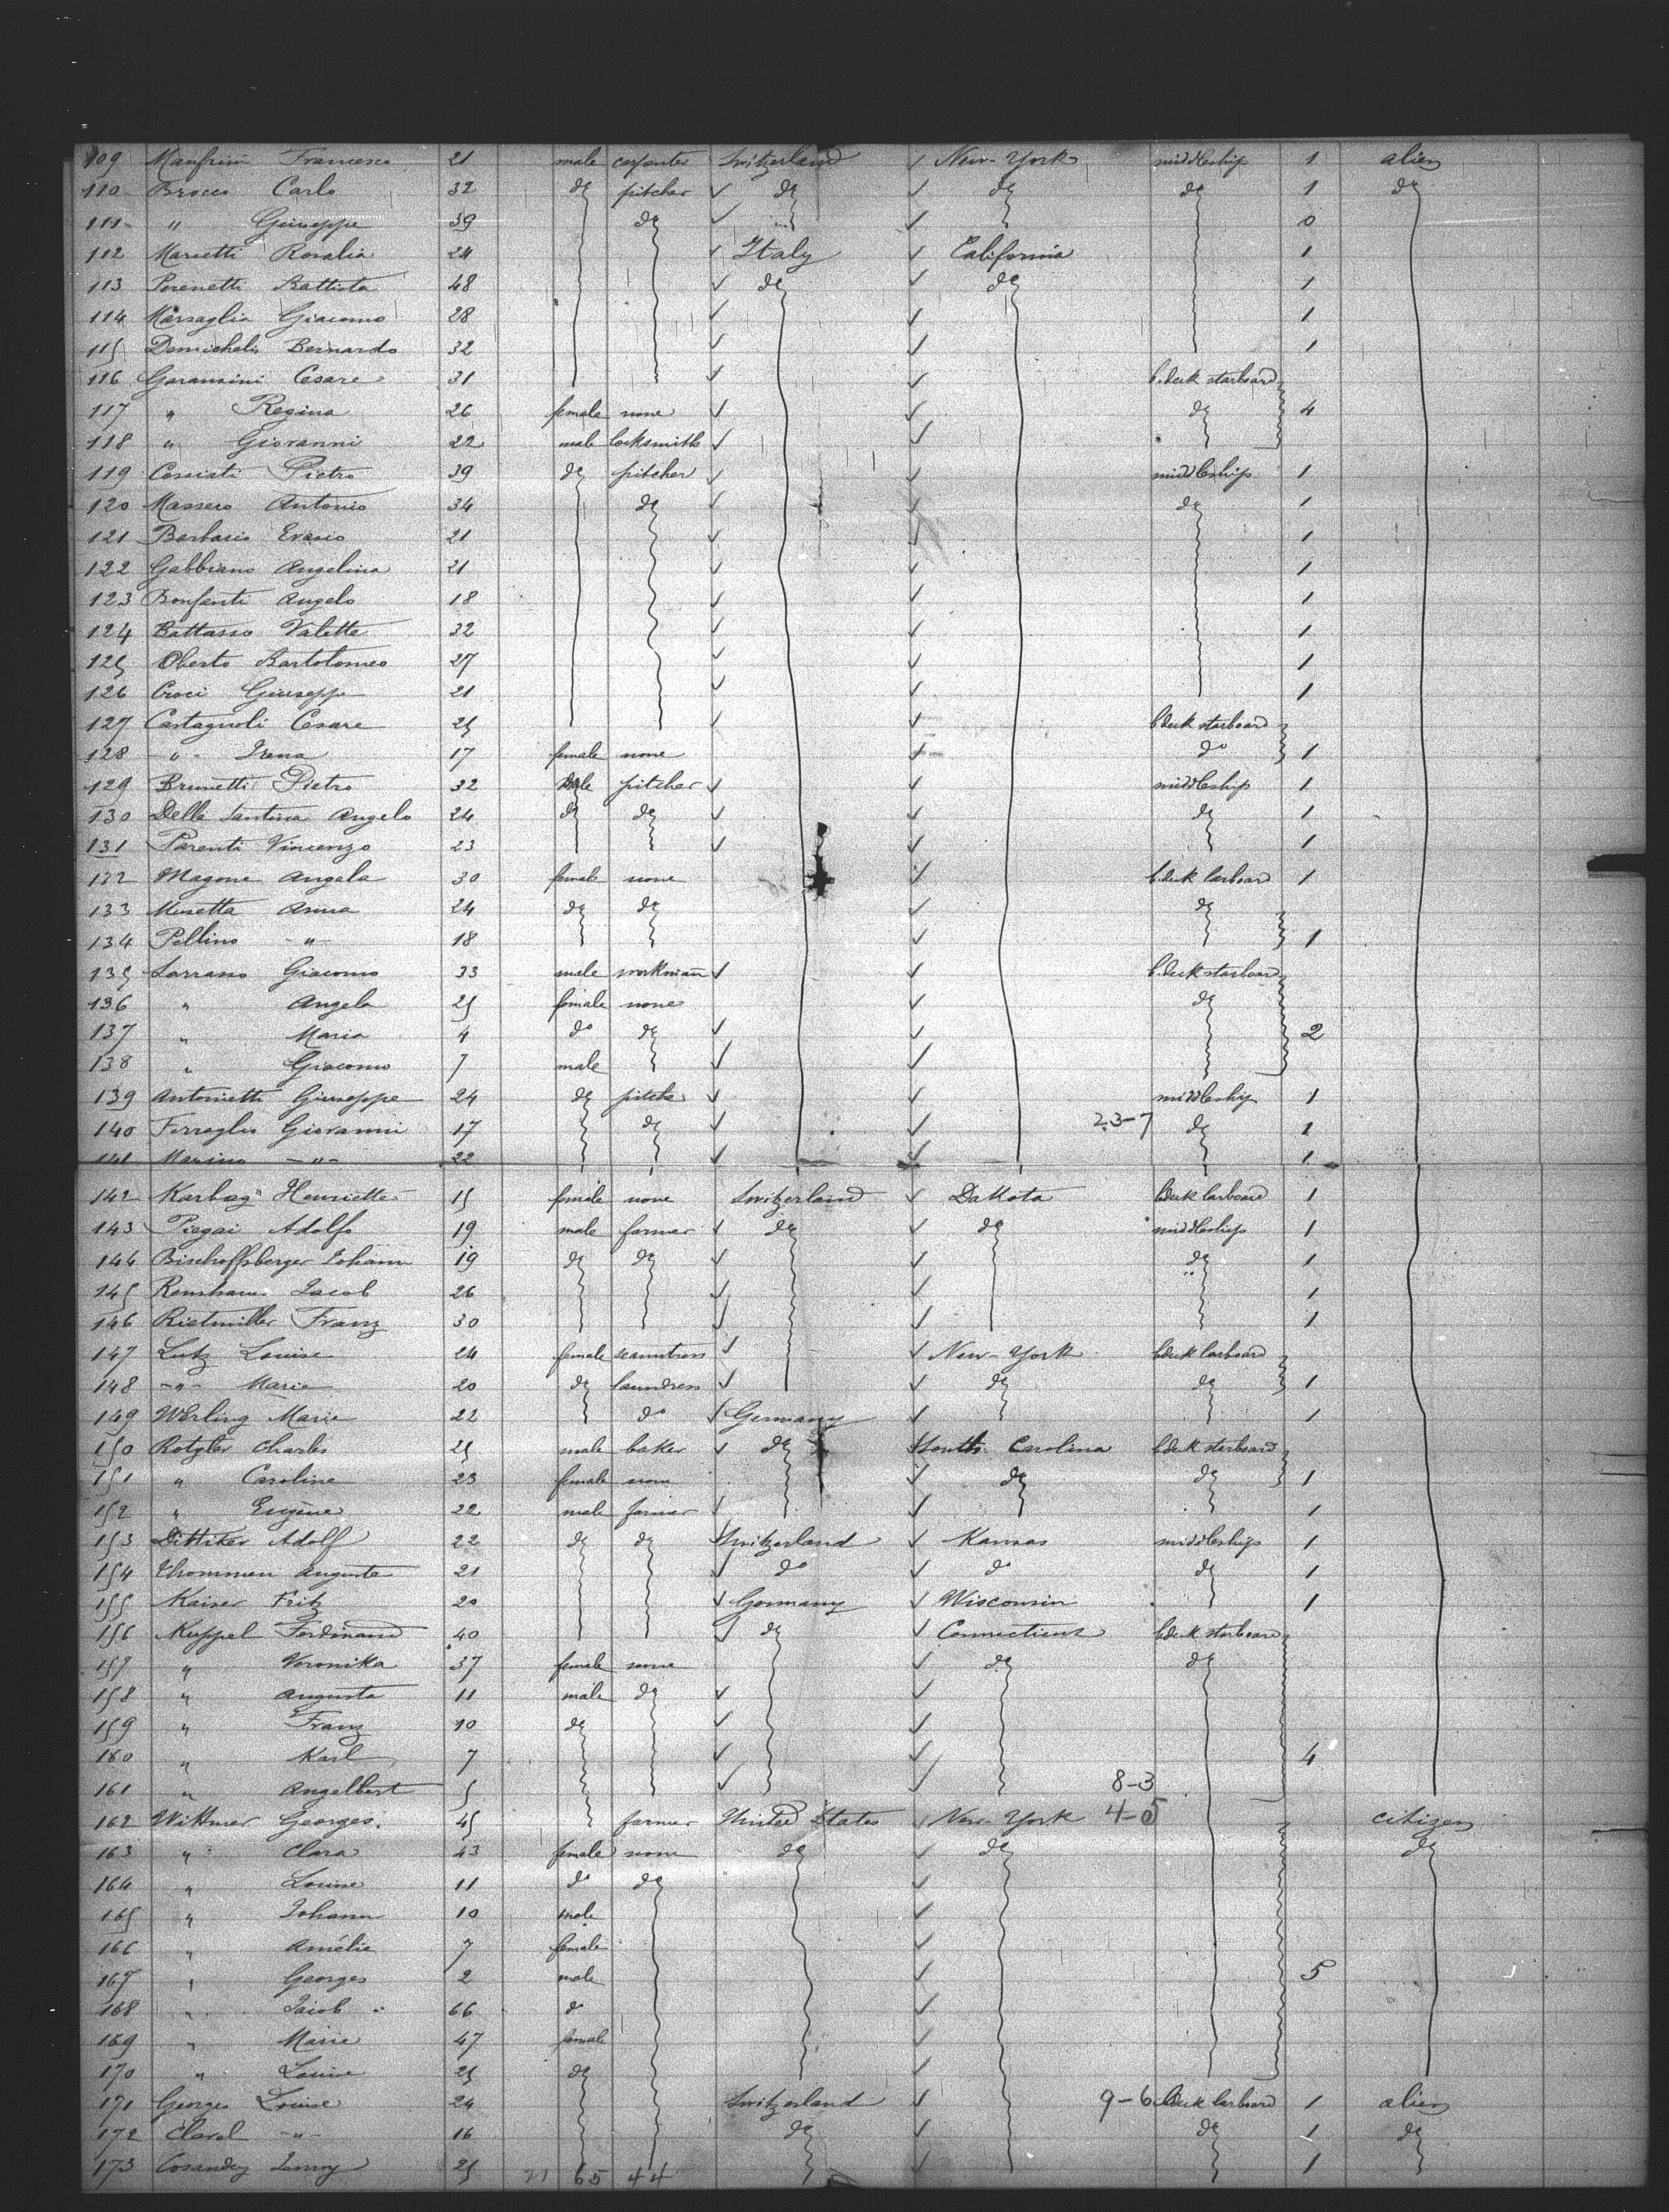 109 Manfrini Francesco 21 male carpenter Switzerland New-York middleship 1 alien
110 Brocco Carlo 32 do pitcher do do do 1 do
111 " Giuseppe 39 do 0
112 Marietti Rosalia 24 Italy California 1
113 Perenetti Battista 48 do do 1
114 Marsaglia Giacomo 28 1
115 Demichelis Bernardo 32 1
116 Garansini Cesare 31 b. deck starboard
117 " Regina 26 female none do 4
118 " Giovanni 22 male locksmith
119 Cossiati Pietro 39 do pitcher middleship 1
120 Massero Antonio 34 do do 1
121 Barbaris Evasio 21 1
122 Gabbiano Angelina 21 1
123 Bonfanti Angelo 18 1
124 Battasso Valette 32 1
125 Oberto Bartolomeo 27 1
126 Croci Giuseppe 21 1
127 Castagnoli Cesare 25 b deck starboard
128 " Irena 17 female none do 1
129 Brunetti Pietro 32 male pitcher middleship 1
130 Della Santina Angelo 24 do do do 1
131 Parenti Vincenzo 23 1
132 Magone Angela 30 female none b. deck larboard 1
133 Minetta Anna 24 do do do
134 Pellino " 18 1
135 Sarrano Giacomo 33 male workman b. deck starboard
136 " Angela 25 female none do
137 " Maria 4 do do 2
138 " Giacomo 7 male
139 Antonietti Giuseppe 24 do pitcher middleship 1
140 Ferraglio Giovanni 17 do 23-7 do 1
141 Marino " 22 1
142 Karbag Henriette 15 female none Switzerland Dakota b deck larboard 1
143 Piegai Adolfo 19 male farmer do do middleship 1
144 Bischoffsberger Johann 19 do do do 1
145 Jacob 26 1
146 Rietmiller Franz 30 1
147 Lutz Louise 24 female seamstress New-York b deck larboard
148 " Marie 20 do laundress do do 1
149 Werling Marie 22 do Germany 1
150 Rotzler Charles 25 male baker do South Carolina b deck starboard
151 " Caroline 23 female none do do 1
152 " Eugène 22 male farmer 1
153 Dittiker Adolf 22 do do Switzerland Kansas middleship 1
154 Thommen Auguste 21 do do do 1
155 Kaiser Fritz 20 Germany Wisconsin 1
156 Kuppel Ferdinand 40 do Connecticut b deck starboard
157 " Veronika 37 female none do do
158 " Augusta 11 male do
159 " Franz 10 do
160 " Karl 7 4
161 " Angelbert 5 8-3
162 Wittmer Georges 45 farmer United States New-York 4-5 citizen
163 " Clara 43 female none do do do
164 " Louise 11 do do
165 " Johann 10 male
166 " Amélie 7 female
167 " Georges 2 male 5
168 " Jacob 66 do
169 " Marie 47 female
170 " Louise 25 do
171 Georges Louise 24 Switzerland 9-6 b deck larboard 1 alien
172 Clarel " 16 do do 1 do
173 Cosandey Jenny 25 1
21 65 44